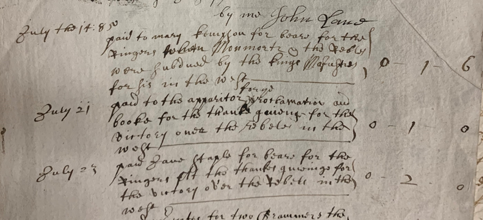 by me John Lane
July the 14: 85
paid to mary kimpson for beare for the
Ringers when Munmorth & the Rebels
were subdued by the kings Majesties
for ses in the west 0 - 1 - 6
for ye
July 21 paid to the apparitor proclamation and
books for the thanks giveing for the
victory over the Rebels in the
west 0 1 0
July paid Jane Staple for beare for the
Ringers att the thanks giveing for
the victory over the Rebels in the
west 0 - 2 0
for two the